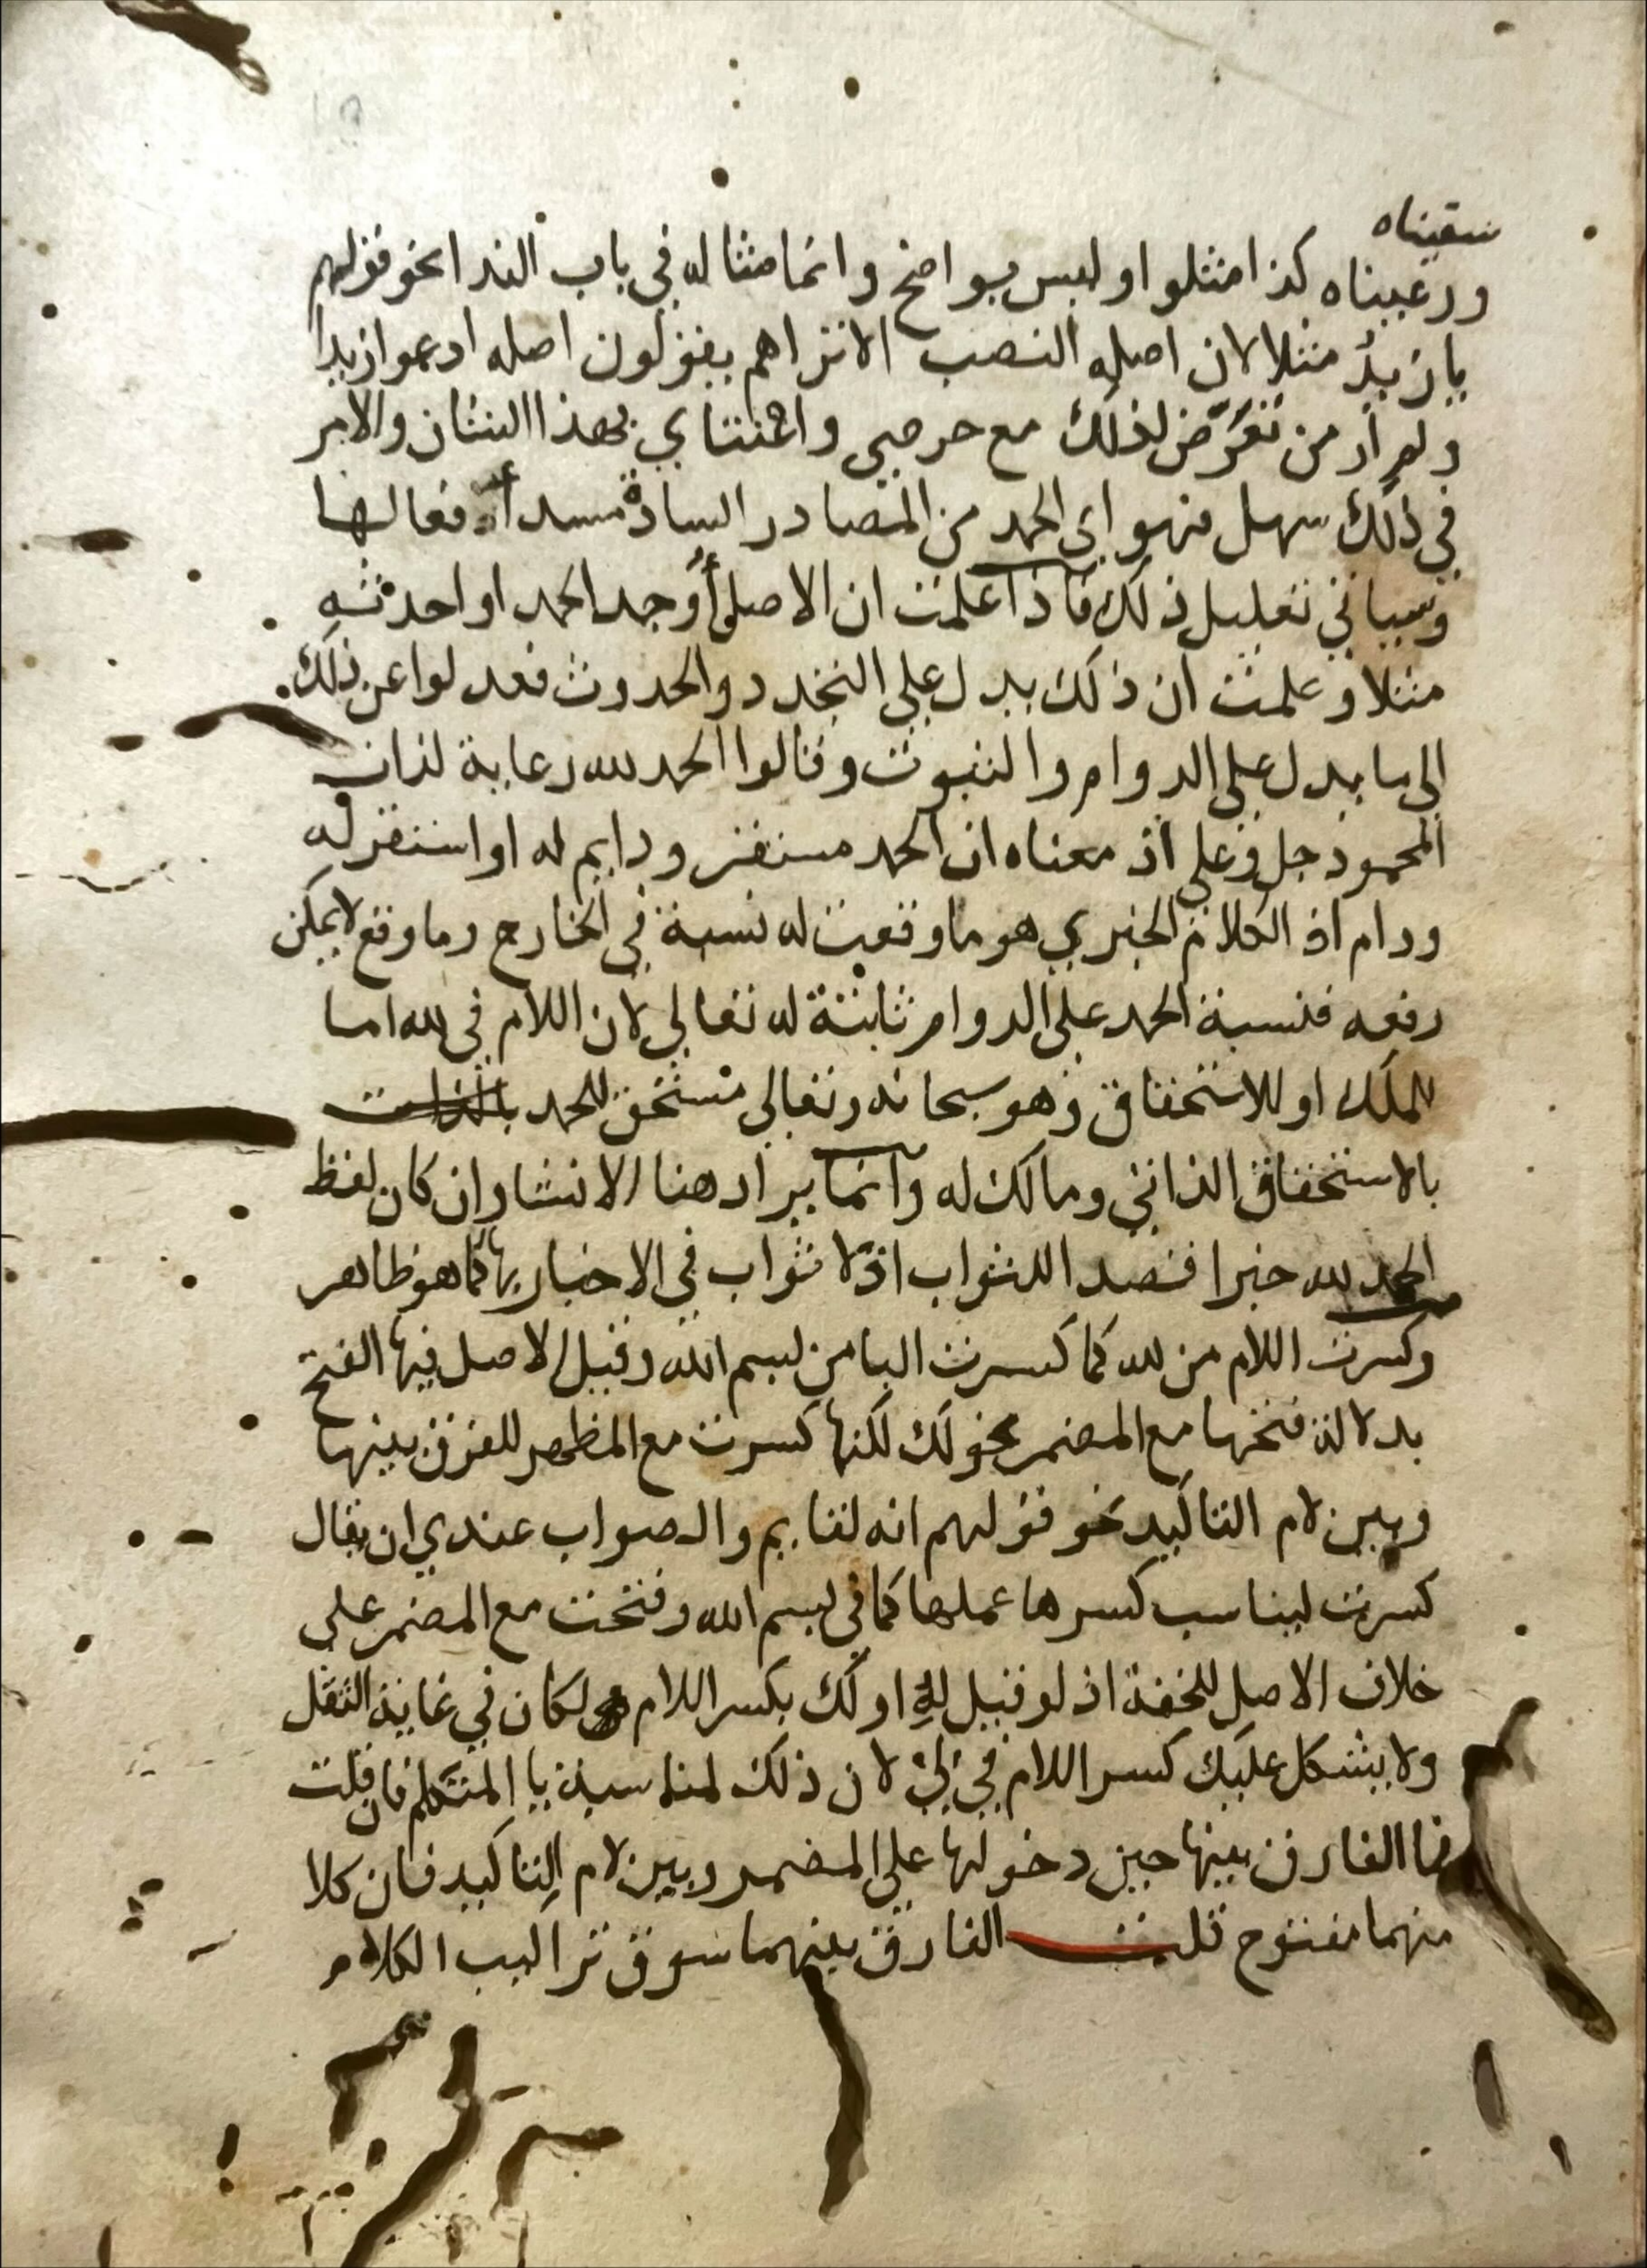 سقيناه
ورعيناه كذا مثلوا وليس بواضح وانما مثاله في باب الندا نحو قولهم
يا زيد مثلا لان اصله النصب الا تراهم يقولون اصله ادعوا زيدا
ولم أر من تعرّض لذلك مع حرصي واعتناي بهذا الشان والامر
في ذلك سهل فهو اي الحمد من المصادر السادة مسد أفعالها
وسياتي تعليل ذلك فاذا علمت ان الاصل أوجد الحمد او احدثه
مثلا وعلمت ان ذلك يدل علي التجدد والحدوث فعدلوا عن ذلك
الي ما يدل علي الدوام والثبوت وقالوا الحمد لله رعاية لذات
المحمود جل وعلي اذ معناه ان الحمد مستقر ودايم له او استقر له
ودام اذ الكلام الخبري هو ما وقعت له نسبة في الخارج وما وقع لا يمكن
رفعه فنسبة الحمد علي الدوام ثابتة له تعالي لان اللام في لله اما
للملك او للاستحقاق وهو سبحانه وتعالي مستحق للحمد بالذات
بالاستحقاق الذاتي ومالك له وانما يراد هنا الانشا وان كان لفظ
الحمد لله خبرا قصد اللثواب اذ لا ثواب في الاخبار بها كما هو ظاهر
وكسرت اللام من لله كما كسرت البا من بسم الله وقيل الاصل فيها الفتح
بدلالة فتحها مع المضمر نحو لك لكنها كسرت مع المظهر للفرق بينها
وبين لام التاكيد نحو قولهم انه لقايم والصواب عندي ان يقال
كسرت ليناسب كسرها عملها كما في بسم الله وفتحت مع المضمر علي
خلاف الاصل للخفة اذ لو قيل لِهِ او لك بكسر اللام لكان في غاية الثقل
ولا يشكل عليك كسر اللام في لِيْ لان ذلك لمناسبة يا المتكلم فان قلت
فما الفارق بينها حين دخولها علي المضمر وبين لام التاكيد فان كلا
منهما مفتوح قلت الفارق بينهما سوق تراكيب الكلام